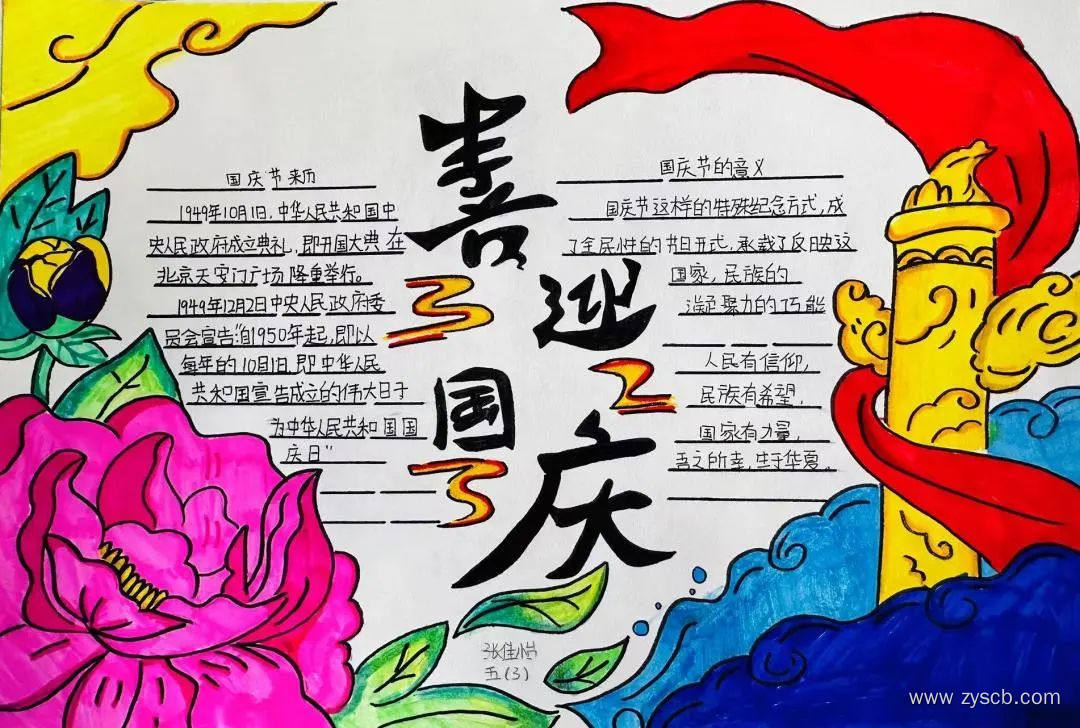 喜
迎
国
庆
国庆节来历
1949年10月1日，中华人民共和国中
央人民政府成立典礼，即开国大典在
北京天安门广场隆重举行。
1949年12月2日中央人民政府委
员会宣告"自1950年起，即以
每年的10月1日，即中华人民
共和国宣告成立的伟大日子
为中华人民共和国国
庆日"
国庆节的意义
国庆节这样的特殊纪念方式，成
了全民性的节日形式，承载了反映这
国家，民族的
凝聚力的功能
人民有信仰，
民族有希望，
国家有力量，
吾之所幸，生于华夏。
张佳怡
五(3)
www.zyscb.com